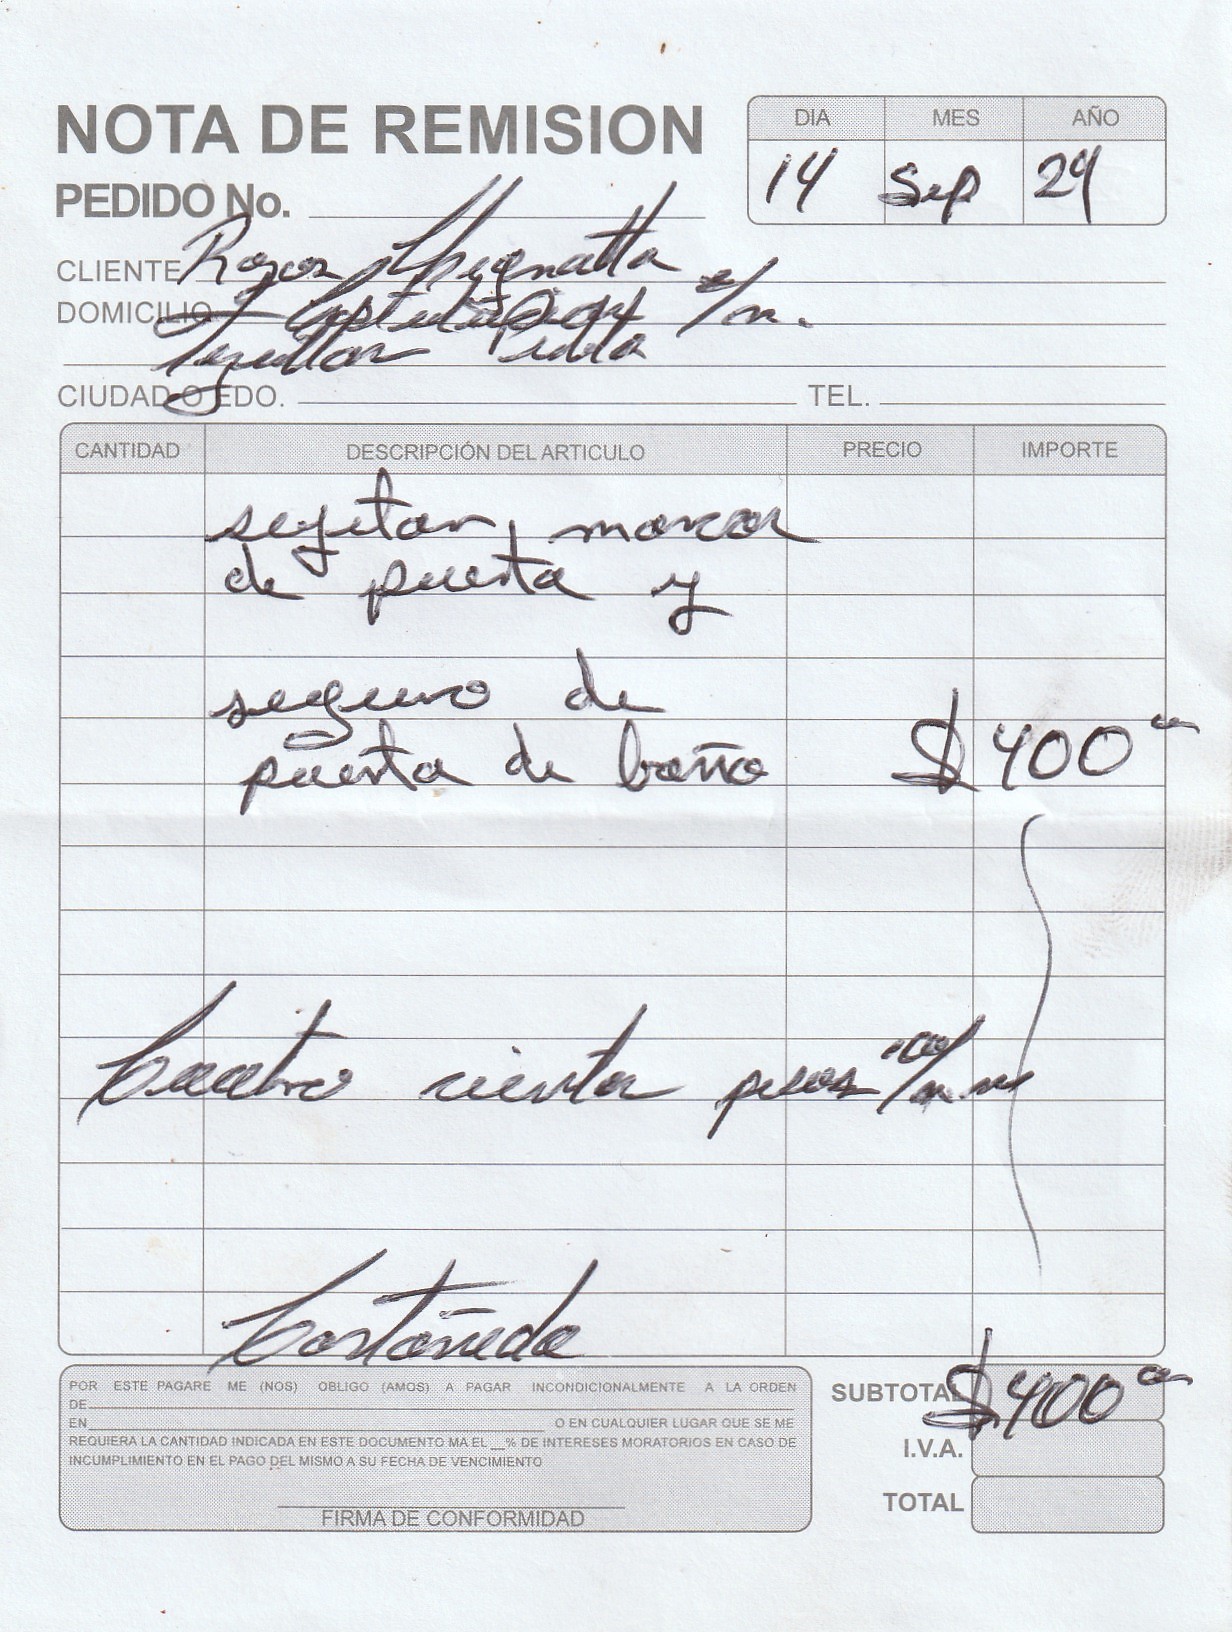 NOTA DE REMISION
DIA MES AÑO
14 Sep 24
PEDIDO No.
CLIENTE
DOMICILIO s/n.
CIUDAD O EDO. TEL.
CANTIDAD DESCRIPCIÓN DEL ARTICULO PRECIO IMPORTE
de puerta y
seguro de
puerta de baño $400
pesos
Castañeda
POR ESTE PAGARE ME (NOS) OBLIGO (AMOS) A PAGAR INCONDICIONALMENTE A LA ORDEN
DE
EN O EN CUALQUIER LUGAR QUE SE ME
REQUIERA LA CANTIDAD INDICADA EN ESTE DOCUMENTO MA EL __% DE INTERESES MORATORIOS EN CASO DE
INCUMPLIMIENTO EN EL PAGO DEL MISMO A SU FECHA DE VENCIMIENTO
FIRMA DE CONFORMIDAD
SUBTOTAL $400
I.V.A.
TOTAL